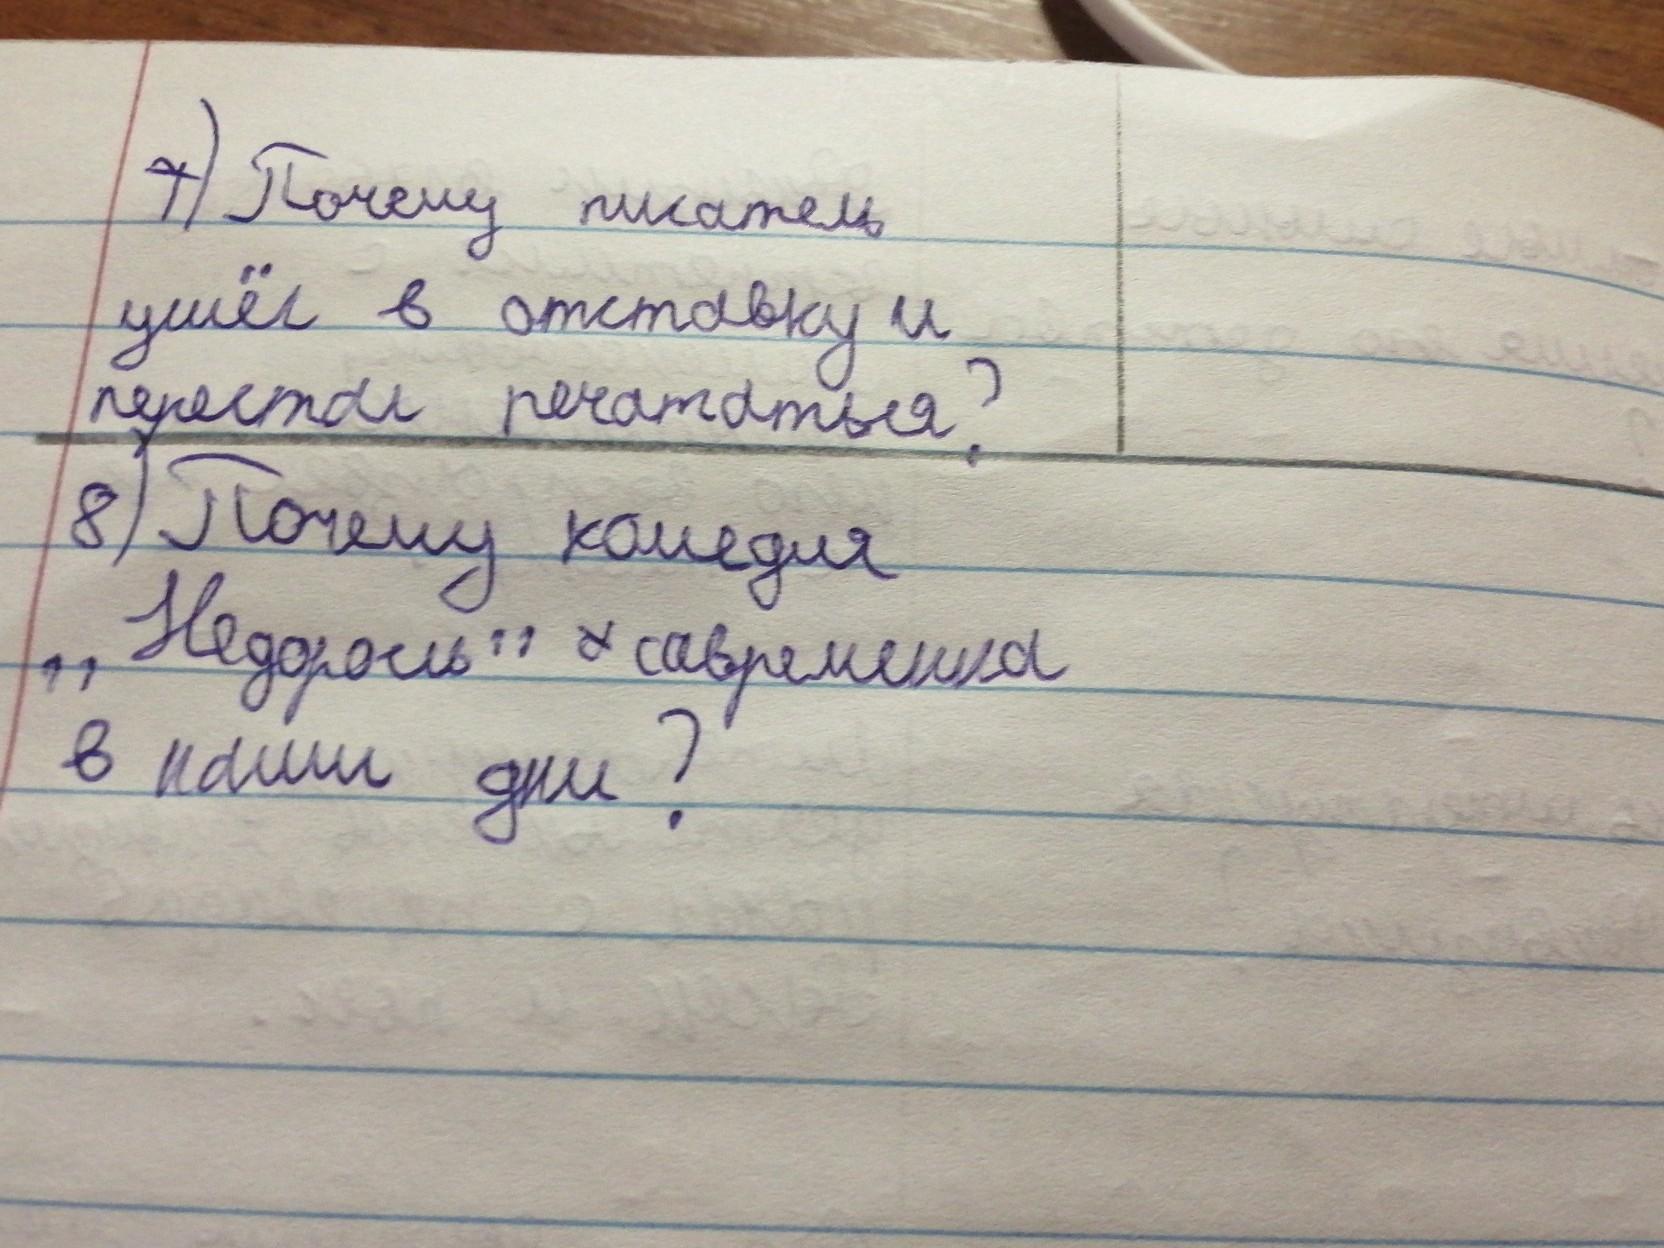 7) Почему писатель
ушёл в отставку и
перестал печататься?
8) Почему комедия
„Недоросль" современна
в наши дни?